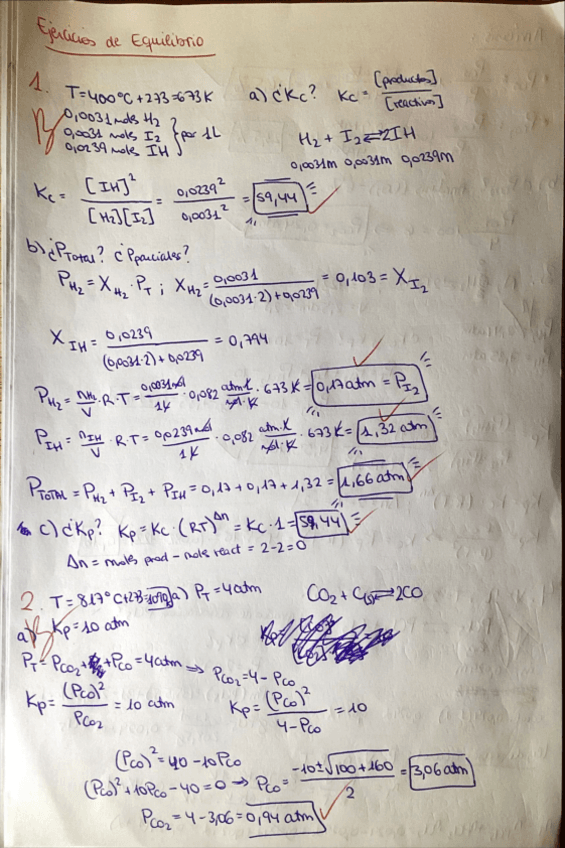 Ejercicios de Equilibrio
1. T=400°C+273=673K a) ¿Kc? Kc = [productos] / [reactivos]
0,0031 mols H₂
0,0031 moles I₂ } por 1L
0,0239 moles IH
H₂ + I₂ ⇄ 2IH
0,0031m 0,0031m 0,0239m
Kc = [IH]² / [H₂][I₂] = 0,0239² / 0,0031² = 59,44
b) ¿P Total? ¿P parciales?
P_H₂ = X_H₂ · P_T ; X_H₂ = 0,0031 / (0,0031·2)+0,0239 = 0,103 = X_I₂
X_IH = 0,0239 / (0,0031·2)+0,0239 = 0,794
P_H₂ = n_H₂/V · R · T = 0,0031 mol / 1L · 0,082 atm·L / mol·K · 673 K = 0,17 atm = P_I₂
P_IH = n_IH/V · R·T = 0,0239 mol / 1L · 0,082 atm·L / mol·K · 673K = 1,32 atm
P_TOTAL = P_H₂ + P_I₂ + P_IH = 0,17 + 0,17 + 1,32 = 1,66 atm
c) ¿Kp? Kp = Kc · (RT)^Δn = Kc · 1 = 59,44
Δn = moles prod - mols react = 2-2=0
2. T=817°C+273=1090 a) P_T = 4atm CO₂ + C(s) ⇄ 2CO
a) Kp=10 atm
P_T = P_CO₂ + P_CO = 4atm ⇒ P_CO₂ = 4 - P_CO
Kp = (P_CO)² / P_CO₂ = 10 atm Kp = (P_CO)² / 4-P_CO = 10
(P_CO)² = 40 - 10P_CO
(P_CO)² + 10P_CO - 40 = 0 → P_CO = -10±√100+160 / 2 = 3,06 atm
P_CO₂ = 4 - 3,06 = 0,94 atm